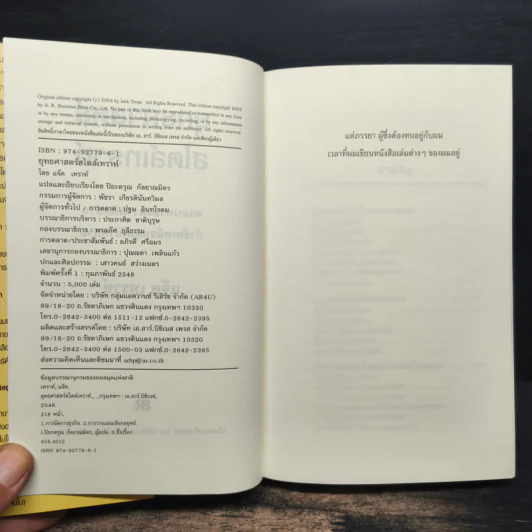 Original edition copyright (c) 2004 by Jack Trout. All Rights Reserved. Thai edition copyright 2005
by A. R. Business Press Co., Ltd. No part of this book may be reproduced or transmitted in any form
or by any means, electronic or mechanical, including photocopying, recording, or by any information
storage and retrieval system, without permission in writing from the publisher. All rights reserved.
ลิขสิทธิ์ภาษาไทยของหนังสือเล่มนี้เป็นของบริษัท เอ. อาร์. บิซิเนส เพรส จำกัด
ISBN : 974-92779-6-1
ยุทธศาสตร์สไตล์เทราท์
โดย แจ๊ค เทราท์
แปลและเรียบเรียงโดย ปิยะดรุณ กัลยาณมิตร
กรรมการผู้จัดการ : พัชรา เกียรตินันทวิมล
ผู้จัดการทั่วไป / การตลาด : ปฐม อินทโรดม
บรรณาธิการบริหาร : ประกาศิต ชาติบุรุษ
กองบรรณาธิการ : พรลภัศ ฤลีธรรม
การตลาด/ประชาสัมพันธ์ : อภิรดี ศรีอมร
เลขานุการกองบรรณาธิการ : ปุณณดา เพลินแก้ว
ปกและศิลปกรรม : เสาวคนธ์ สว่างเนตร
พิมพ์ครั้งที่ 1 : กุมภาพันธ์ 2548
จำนวน : 5,000 เล่ม
จัดจำหน่ายโดย : บริษัท กลุ่มแอดวานซ์ รีเสิร์ช จำกัด (AR4U)
99/16-20 ถ.รัชดาภิเษก แขวงดินแดง กรุงเทพฯ 10320
โทร.0-2642-3400 ต่อ 1511-12 แฟกซ์.0-2642-2395
ผลิตและสร้างสรรค์โดย : บริษัท เอ.อาร์.บิซิเนส เพรส จำกัด
99/16-20 ถ.รัชดาภิเษก แขวงดินแดง กรุงเทพฯ 10320
โทร.0-2642-3400 ต่อ 1500-03 แฟกซ์.0-2642-2395
ส่งความคิดเห็นและติชมมาที่ arbp@ar.co.th
ข้อมูลบรรณานุกรมของหอสมุดแห่งชาติ
เทราท์, แจ๊ค.
ยุทธศาสตร์สไตล์เทราท์.__กรุงเทพฯ : เอ.อาร์.บิซิเนส,
2548.
218 หน้า.
1.การจัดการธุรกิจ. 2.การวางแผนเชิงกลยุทธ์.
I.ปิยะดรุณ กัลยาณมิตร, ผู้แปล. II.ชื่อเรื่อง.
658.4012
ISBN 974-92779-6-1
แด่ภรรยา ผู้ซึ่งต้องทนอยู่กับผม
เวลาที่ผมเขียนหนังสือเล่มต่างๆ ของผมอยู่